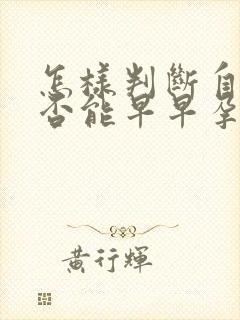 怎樣判斷自
否能早早孕
黃行輝